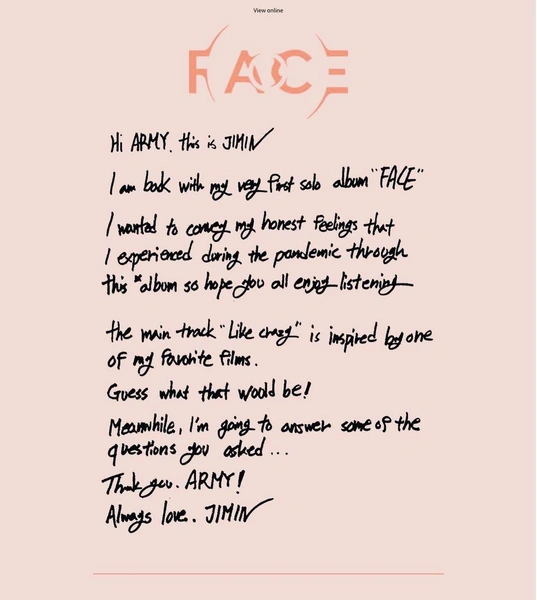 View online
FACE
Hi ARMY. this is JIMIN
I am back with my very first solo album "FACE"
I wanted to convey my honest feelings that
I experienced during the pandemic through
this album so hope you all enjoy listening
the main track "Like crazy" is inspired by one
of my favorite films.
Guess what that would be!
Meanwhile, I'm going to answer some of the
questions you asked...
Thank you. ARMY!
Always love. JIMIN